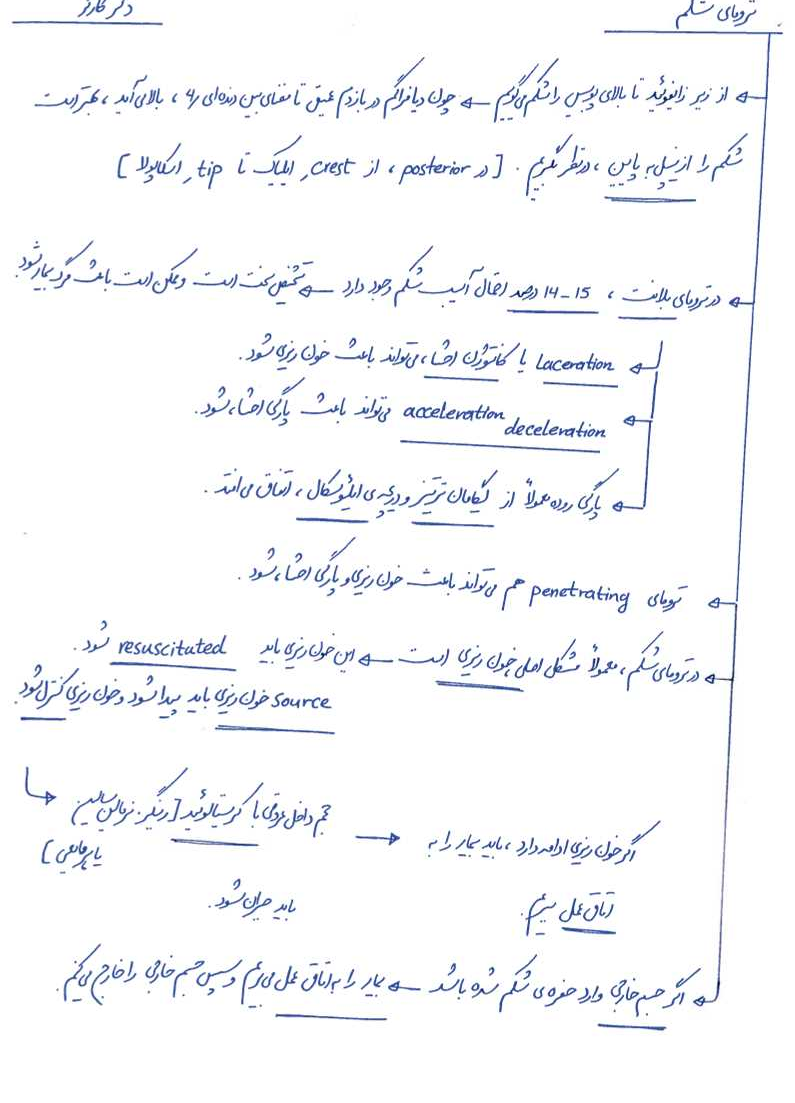 ترومای شکم
دکتر
از زیر زایفوئید تا بالای پوبیس را شکم می‌گوییم ← چون دیافراگم در بازدم عمیق تا فضای بین دنده‌ای ۴، بالا می‌آید، بهتر است
شکم را از نیپل به پایین، در نظر بگیریم. [در posterior، از crest ایلیاک تا tip اسکاپولا]
در ترومای بلانت، ۱۵-۱۴ درصد احتمال آسیب شکم وجود دارد ← تشخیص سخت است و ممکن است باعث مرگ بیمار شود.
laceration یا کانتوژن احشاء، می‌تواند باعث خون ریزی شود.
acceleration deceleration می‌تواند باعث پارگی احشاء، شود.
پارگی روده معمولاً از لیگامان تریتز و دریچه‌ی ایلئوسکال، اتفاق می‌افتد.
ترومای penetrating هم می‌تواند باعث خون ریزی و پارگی احشاء، شود.
در ترومای شکم، معمولاً مشکل اصلی خون ریزی است ← این خون ریزی باید resuscitated شود.
source خون ریزی باید پیدا شود و خون ریزی کنترل شود.
اگر خون ریزی ادامه دارد، باید بیمار را به → حجم داخل عروقی با کریستالوئید [رینگر، نرمال سالین
یا هر مایعی]
اتاق عمل ببریم. باید جبران شود.
اگر جسم خارجی وارد حفره‌ی شکم شده باشد ← بیمار را به اتاق عمل می‌بریم و سپس جسم خارجی را خارج می‌کنیم.